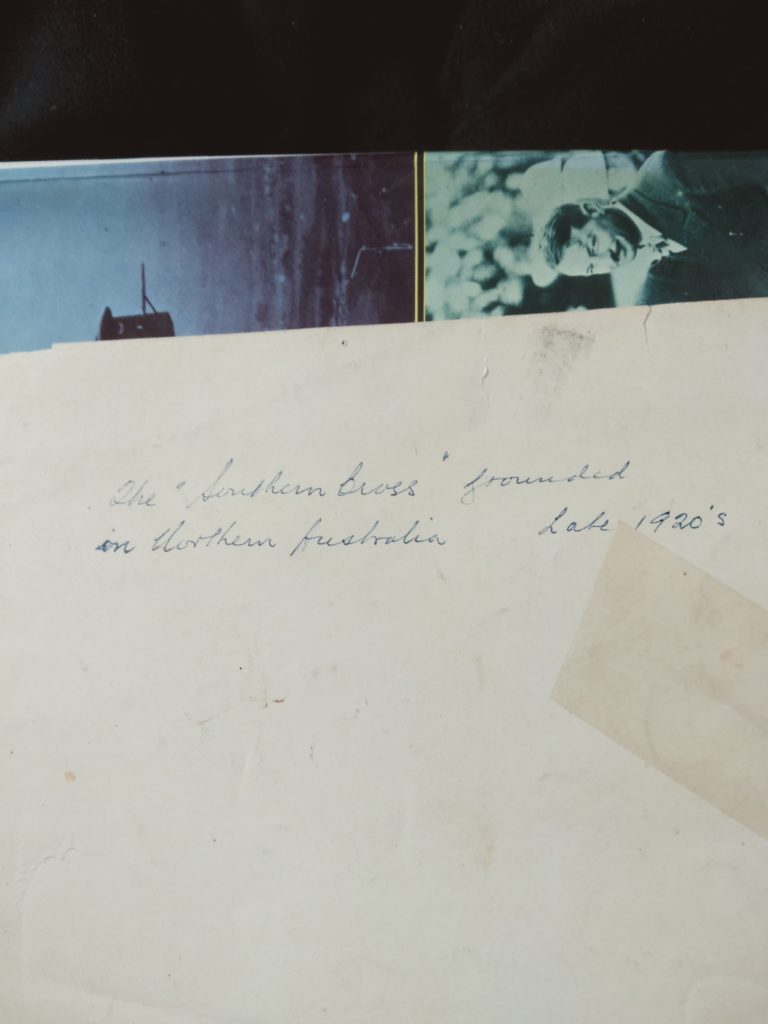 The "Southern Cross" grounded
in Northern Australia Late 1920's